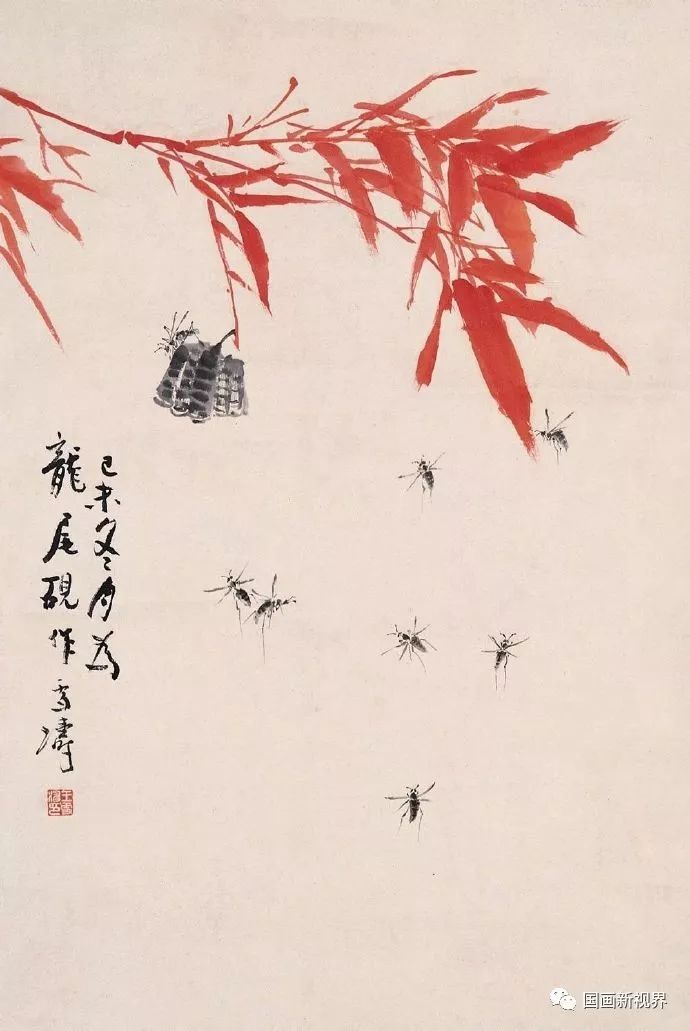 己未冬月為
龍尾硯作雪濤
王雪濤印
国画新视界